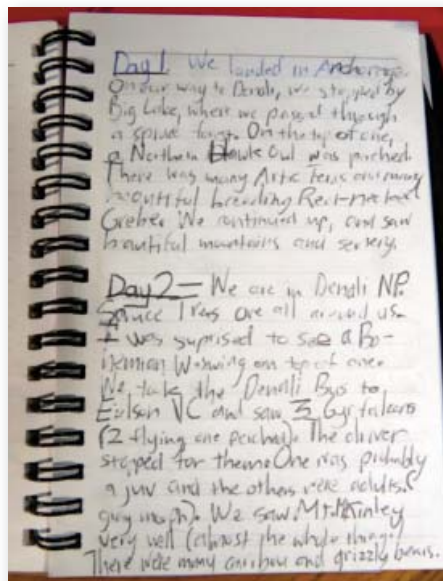 Day 1. We landed in Anchorage.
On our way to Denali, we stopped by
Big Lake, where we passed through
a spruce forest. On the top of one,
a Northern Hawk Owl was perched.
There was many Artic Terns and many
beautiful breeding Red-necked
Grebes. We continued up, and saw
beautiful mountains and
Day 2 = We are in Denali NP.
Spruce Trees are all around us.
I was suprised to see a Bo-
hemian Waxwing on top of one.
We take the Denali Bus to
Eielson VC and saw 3 Gyrfalcons
(2 flying one perched). The driver
stoped for them. One was probably
a juv and the others were adults.
gray morph). We saw Mt. McKinley
very well (almost the whole thing).
There were many caribou and grizzly bears.